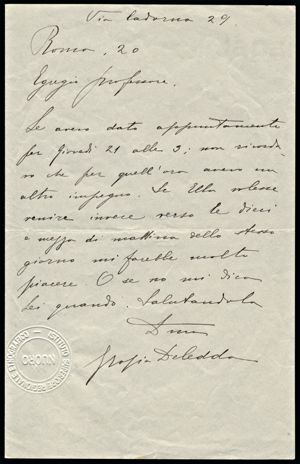 Via Cadorna 29
Roma, 20
Egregio professore.
Le avevo dato appuntamento
per Giovedì 21 alle 3; non ricorda-
vo che per quell'ora avevo un
altro impegno. Se Ella volesse
venire invece verso le dieci
e mezza di mattina dello stesso
giorno mi farebbe molto
piacere. O se no mi dica
Lei quando. Salutandola
Grazia Deledda
NUORO